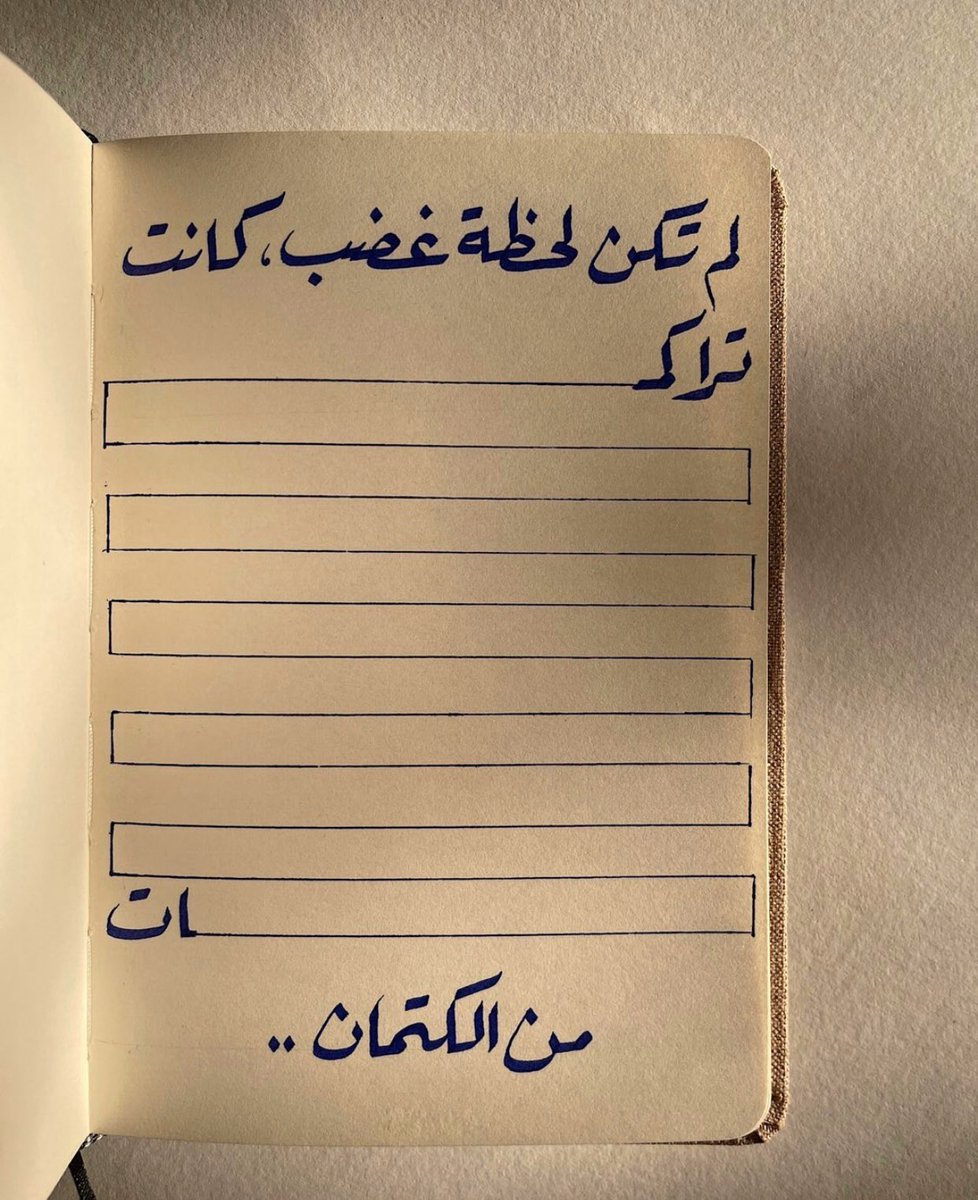 لم تكن لحظة غضب، كانت
تراكمـ
ـات
من الكتمان ..